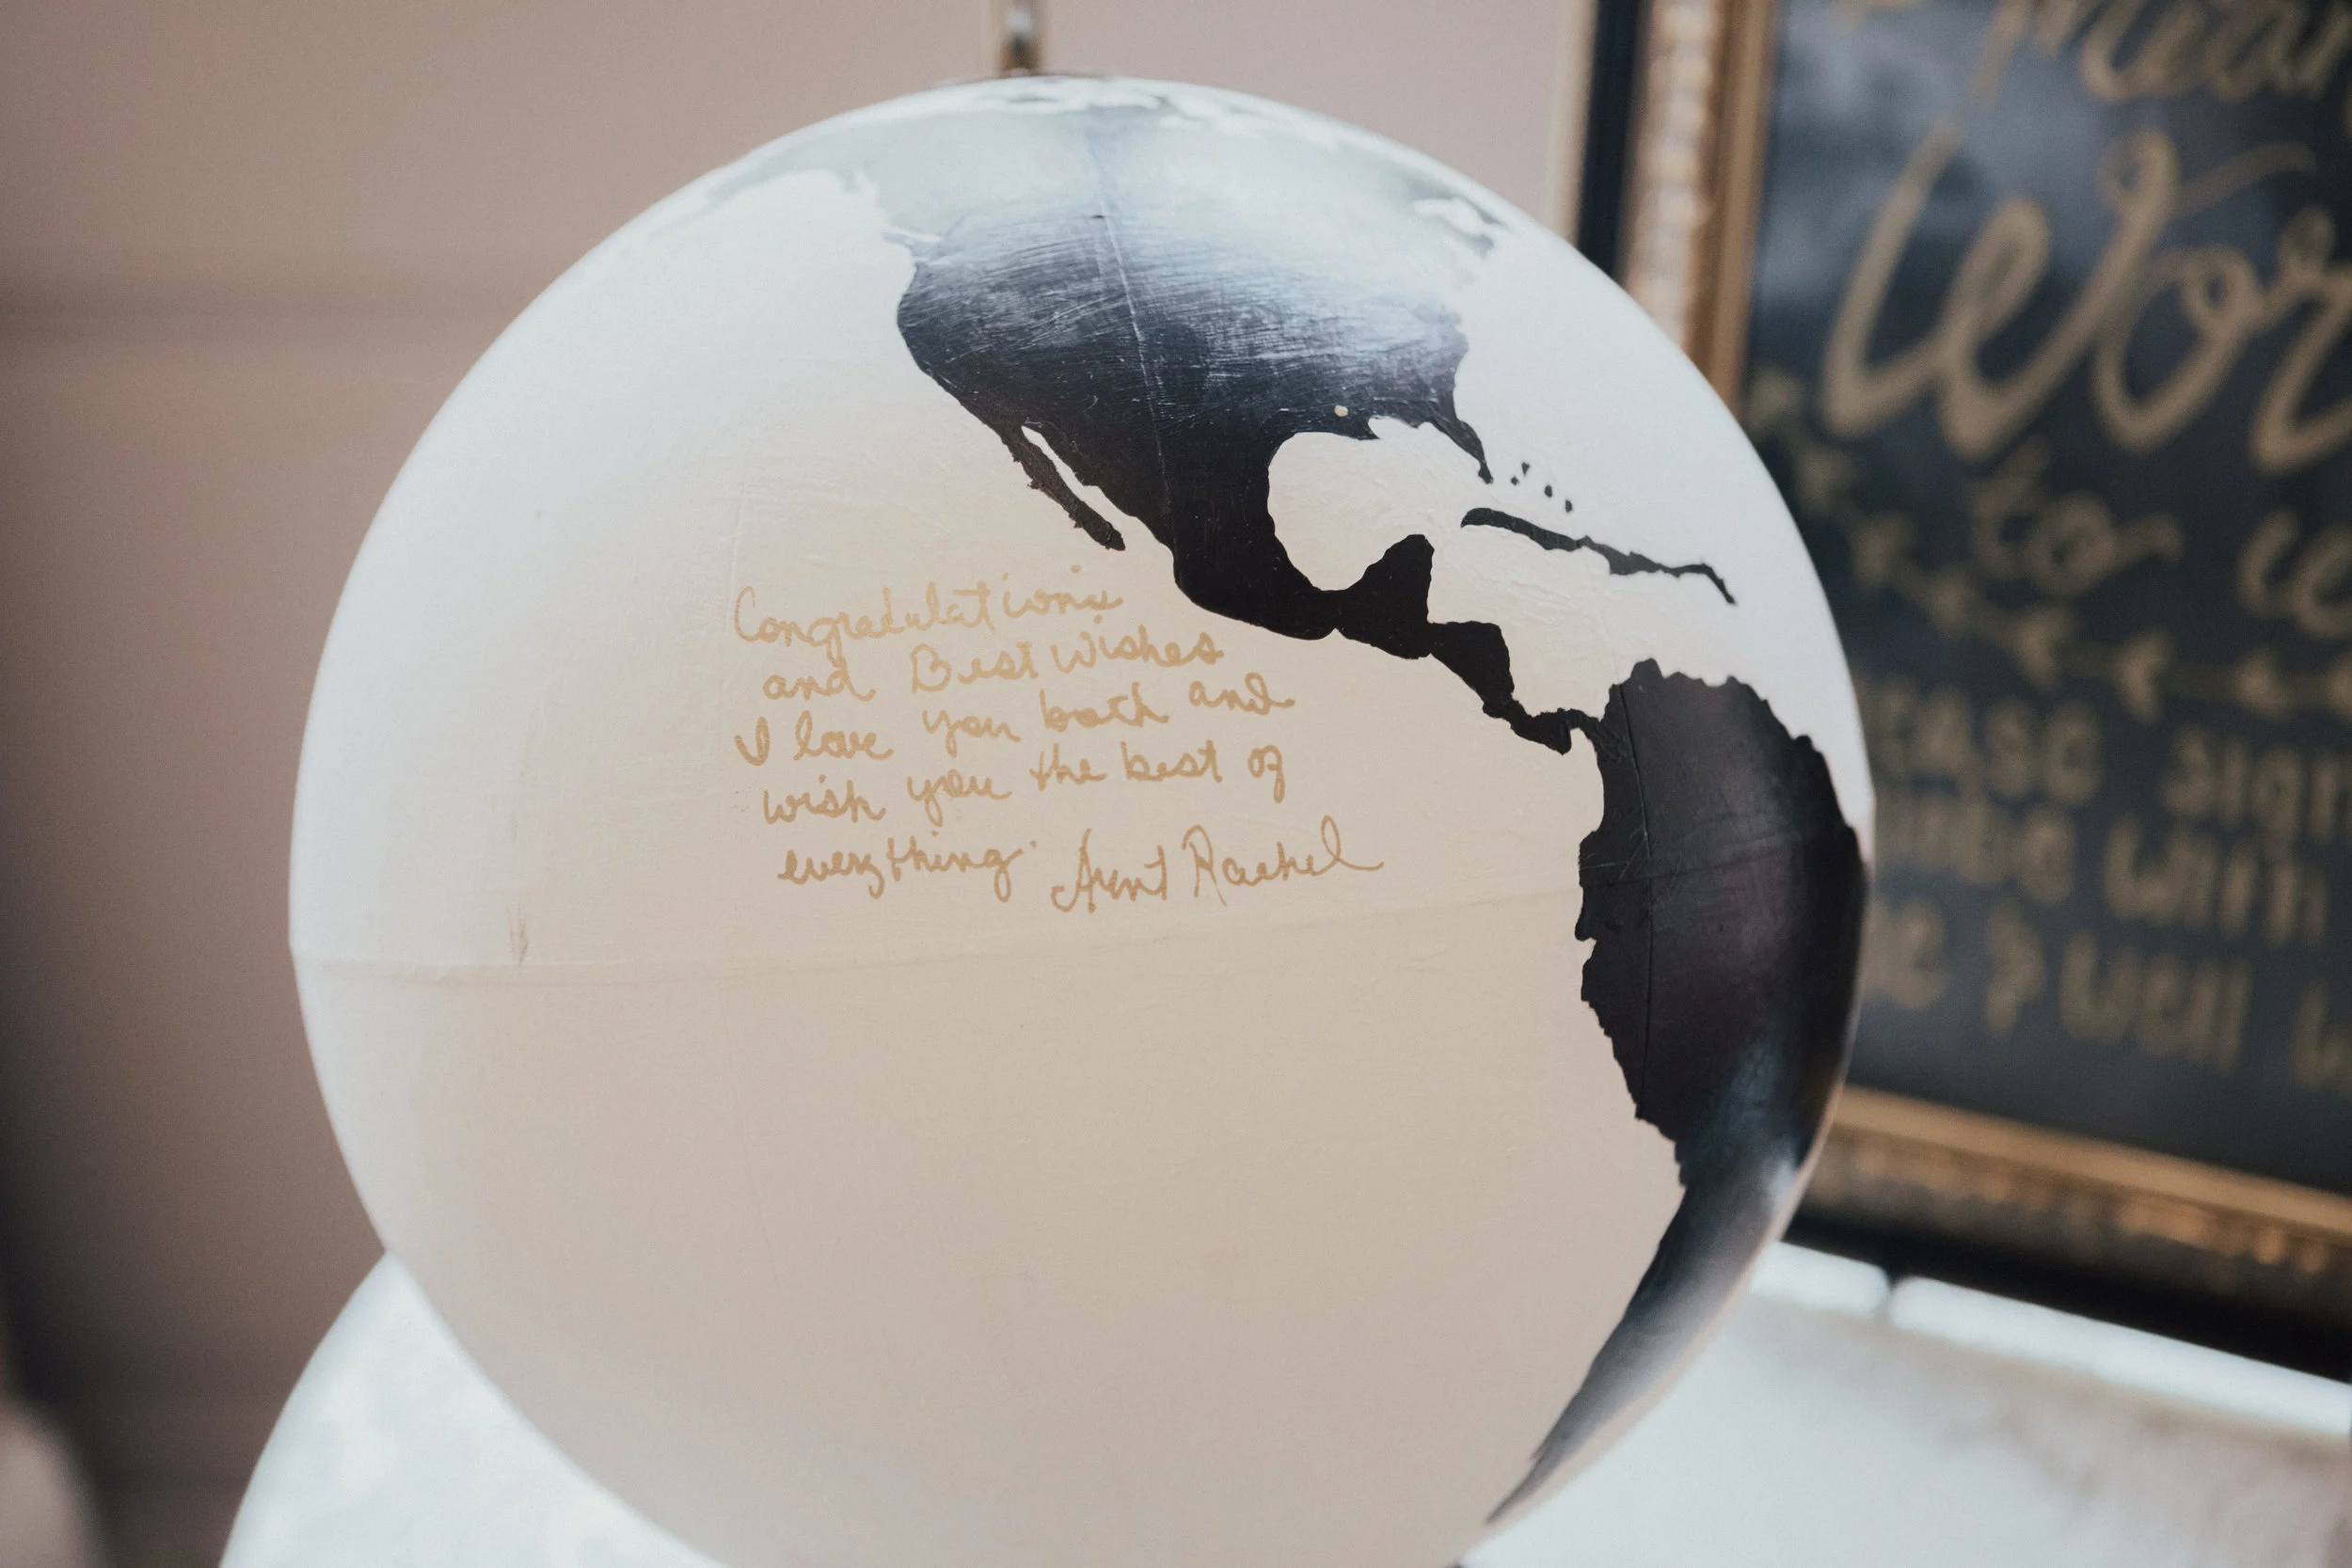 Congradulations
and Best Wishes
I love you both and
wish you the best of
everything. Aunt Rachel
to
with